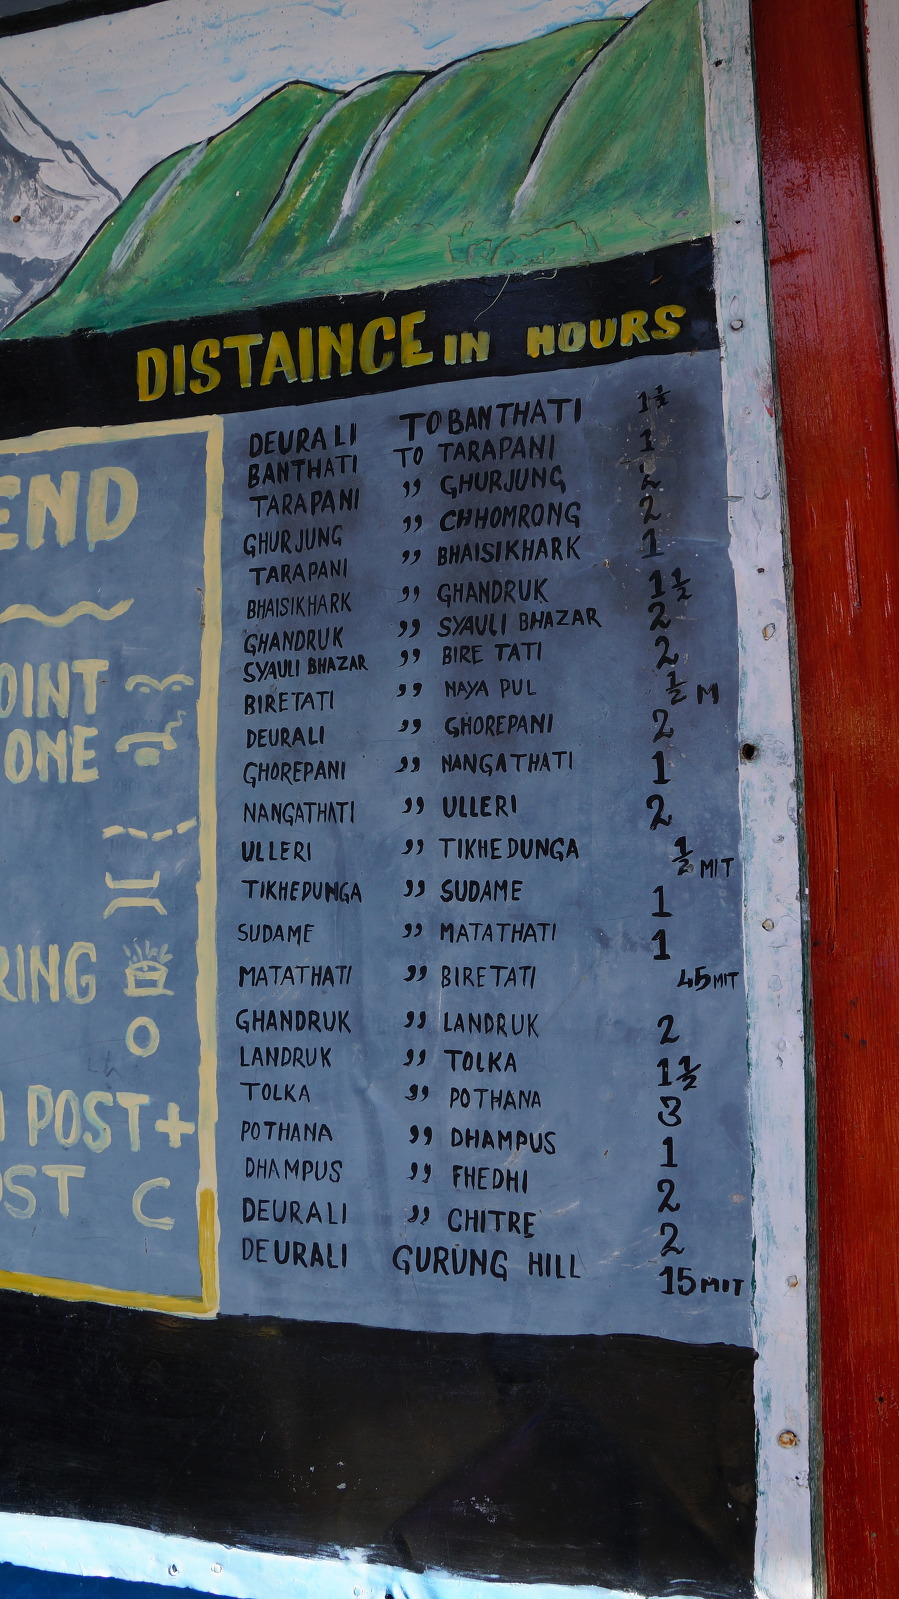 DISTAINCE IN HOURS
END
OINT
ONE
RING
POST+
OST C
DEURALI TO BANTHATI 1½
BANTHATI TO TARAPANI 1
TARAPANI ,, GHURJUNG 2
GHURJUNG ,, CHHOMRONG 2
TARAPANI ,, BHAISIKHARK 1
BHAISIKHARK ,, GHANDRUK 1½
GHANDRUK ,, SYAULI BHAZAR 2
SYAULI BHAZAR ,, BIRE TATI 2
BIRETATI ,, NAYA PUL ½ M
DEURALI ,, GHOREPANI 2
GHOREPANI ,, NANGATHATI 1
NANGATHATI ,, ULLERI 2
ULLERI ,, TIKHEDUNGA ½ MIT
TIKHEDUNGA ,, SUDAME 1
SUDAME ,, MATATHATI 1
MATATHATI ,, BIRETATI 45MIT
GHANDRUK ,, LANDRUK 2
LANDRUK ,, TOLKA 1½
TOLKA ,, POTHANA 3
POTHANA ,, DHAMPUS 1
DHAMPUS ,, FHEDHI 2
DEURALI ,, CHITRE 2
DEURALI GURUNG HILL 15MIT